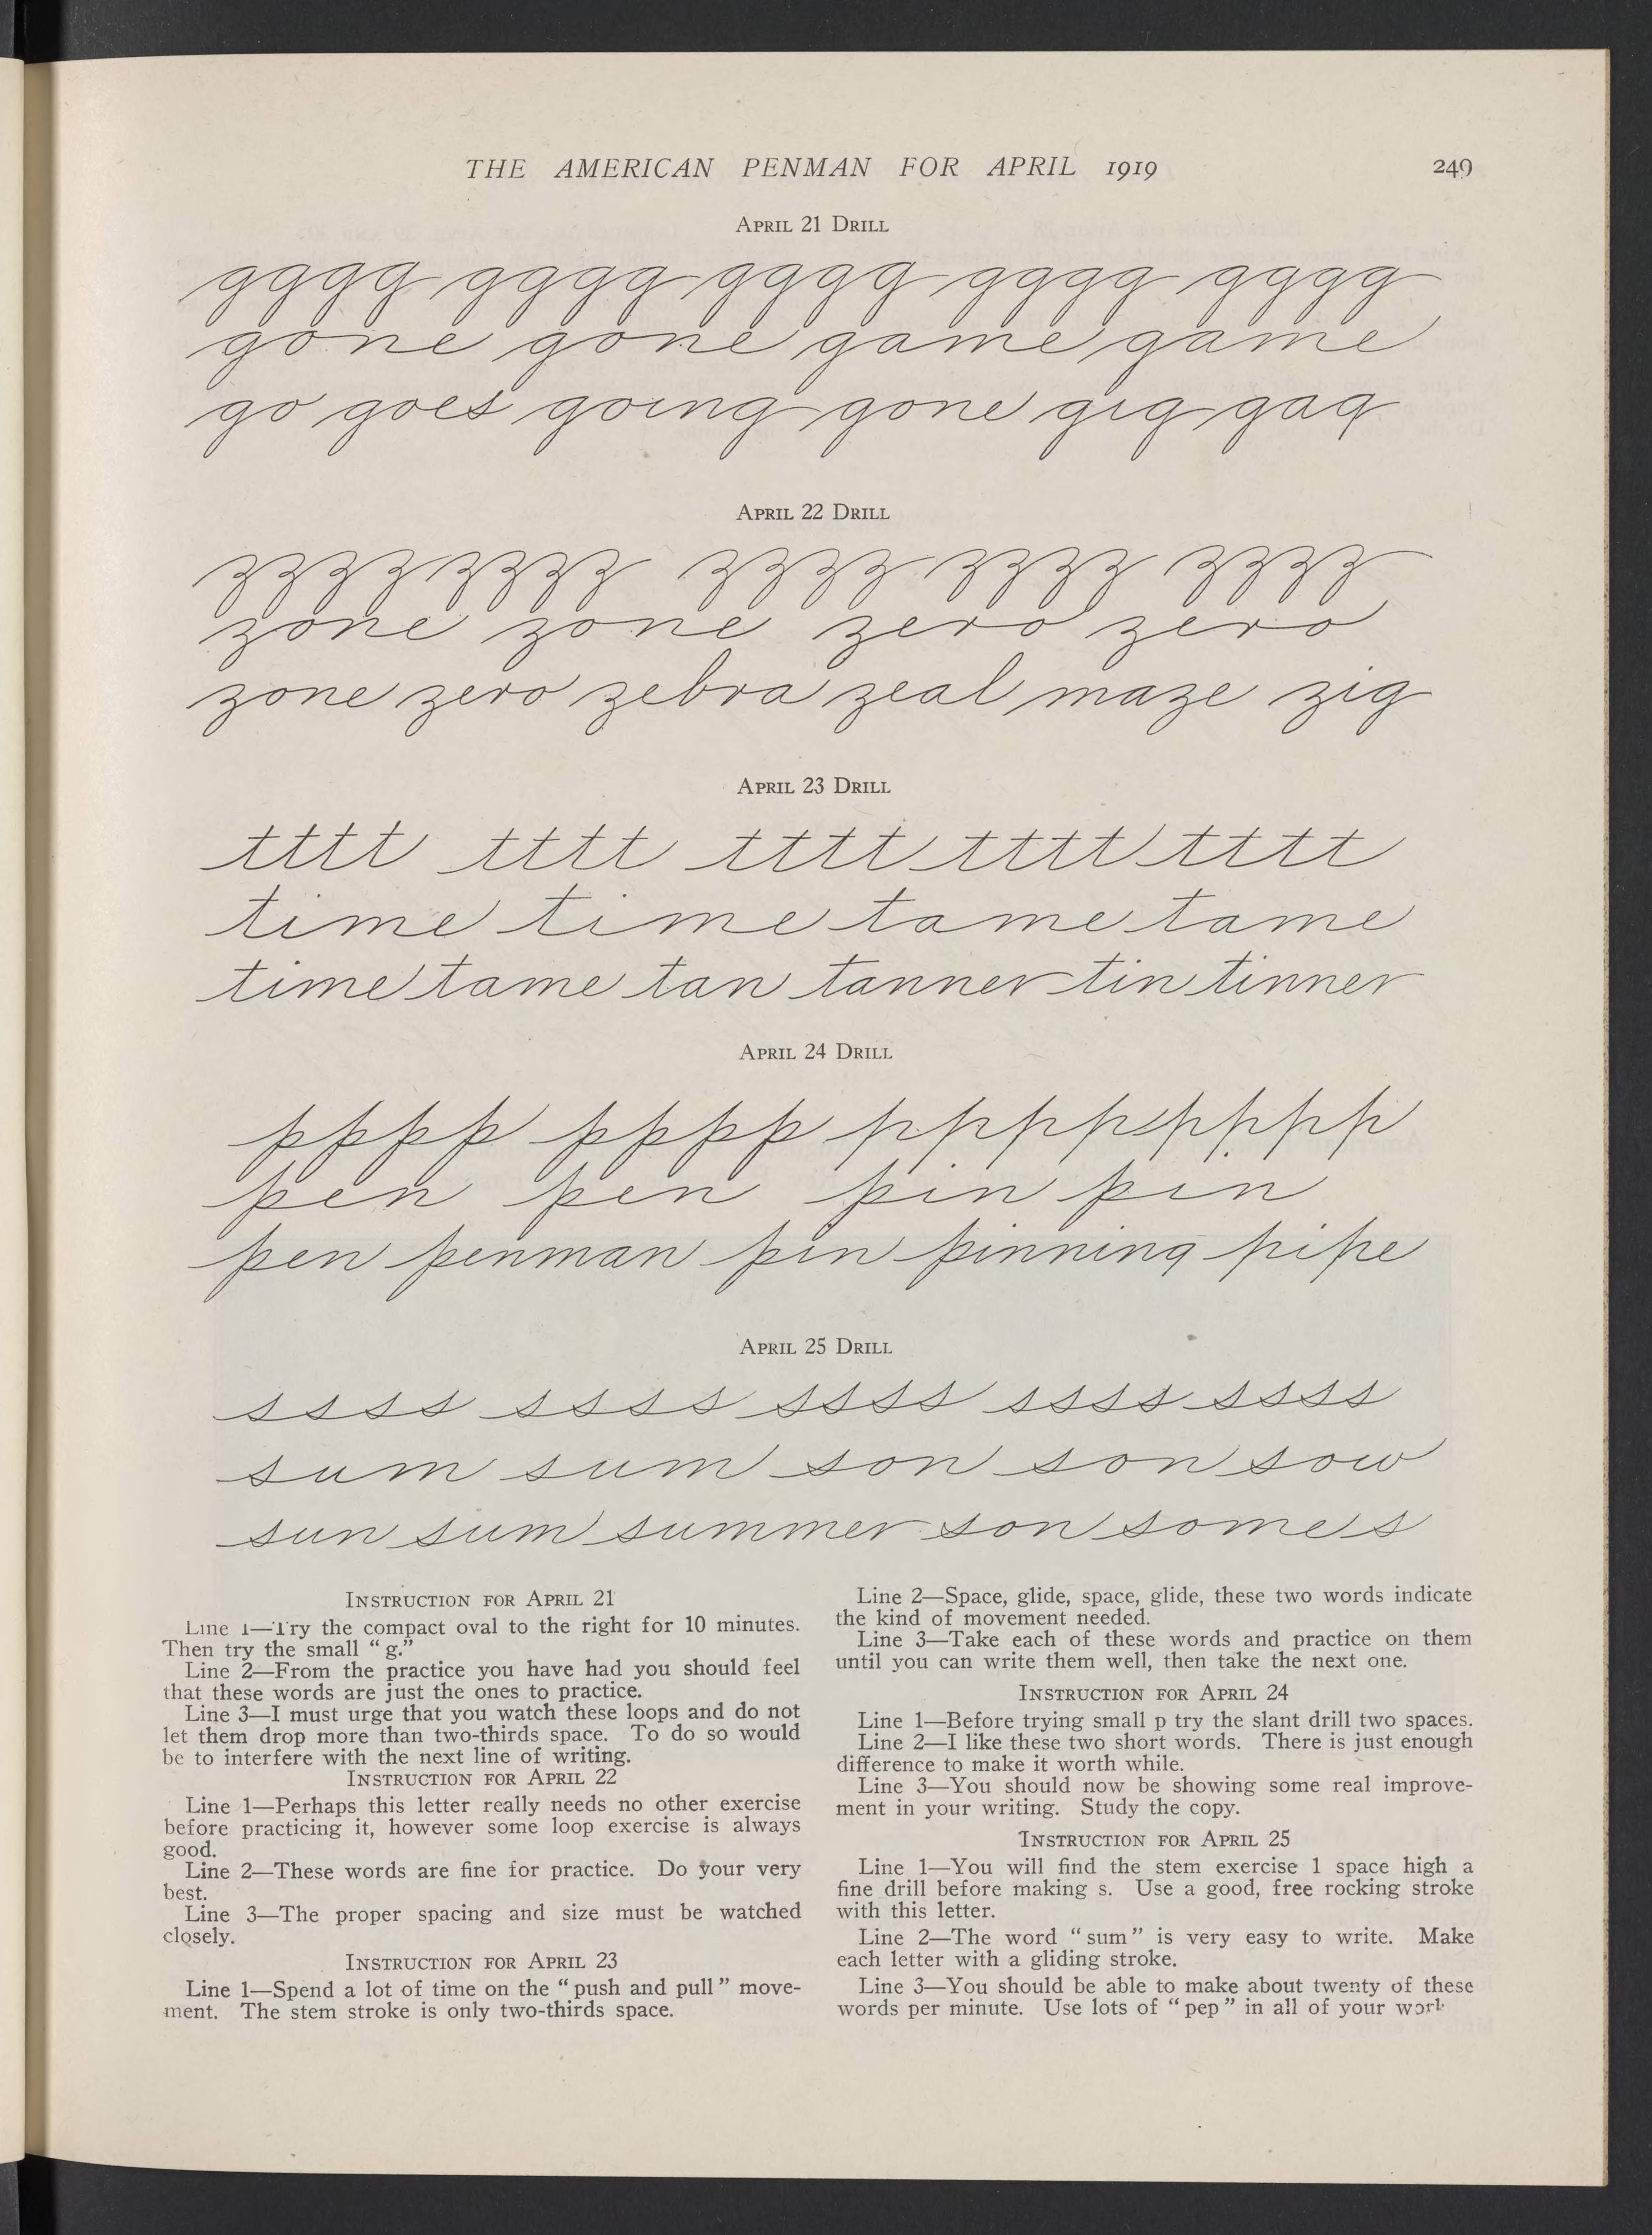 THE AMERICAN PENMAN FOR APRIL 1919 249
APRIL 21 DRILL
gggg gggg gggg gggg gggg
gone gone game game
go goes going gone gig gag
APRIL 22 DRILL
zzzz zzzz zzzz zzzz zzzz
zone zone zero zero
zone zero zebra zeal maze zig
APRIL 23 DRILL
tttt tttt tttt tttt tttt
time time tame tame
time tame tan tanner tin tinner
APRIL 24 DRILL
pppp pppp pppp pppp
pen pen pin pin
pen penman pin pinning pipe
APRIL 25 DRILL
ssss ssss ssss ssss ssss
sum sum son son sow
sun sum summer son some s
INSTRUCTION FOR APRIL 21
Line 1—Try the compact oval to the right for 10 minutes.
Then try the small "g."
Line 2—From the practice you have had you should feel
that these words are just the ones to practice.
Line 3—I must urge that you watch these loops and do not
let them drop more than two-thirds space. To do so would
be to interfere with the next line of writing.
INSTRUCTION FOR APRIL 22
Line 1—Perhaps this letter really needs no other exercise
before practicing it, however some loop exercise is always
good.
Line 2—These words are fine for practice. Do your very
best.
Line 3—The proper spacing and size must be watched
closely.
INSTRUCTION FOR APRIL 23
Line 1—Spend a lot of time on the "push and pull" move-
ment. The stem stroke is only two-thirds space.
Line 2—Space, glide, space, glide, these two words indicate
the kind of movement needed.
Line 3—Take each of these words and practice on them
until you can write them well, then take the next one.
INSTRUCTION FOR APRIL 24
Line 1—Before trying small p try the slant drill two spaces.
Line 2—I like these two short words. There is just enough
difference to make it worth while.
Line 3—You should now be showing some real improve-
ment in your writing. Study the copy.
INSTRUCTION FOR APRIL 25
Line 1—You will find the stem exercise 1 space high a
fine drill before making s. Use a good, free rocking stroke
with this letter.
Line 2—The word "sum" is very easy to write. Make
each letter with a gliding stroke.
Line 3—You should be able to make about twenty of these
words per minute. Use lots of "pep" in all of your work